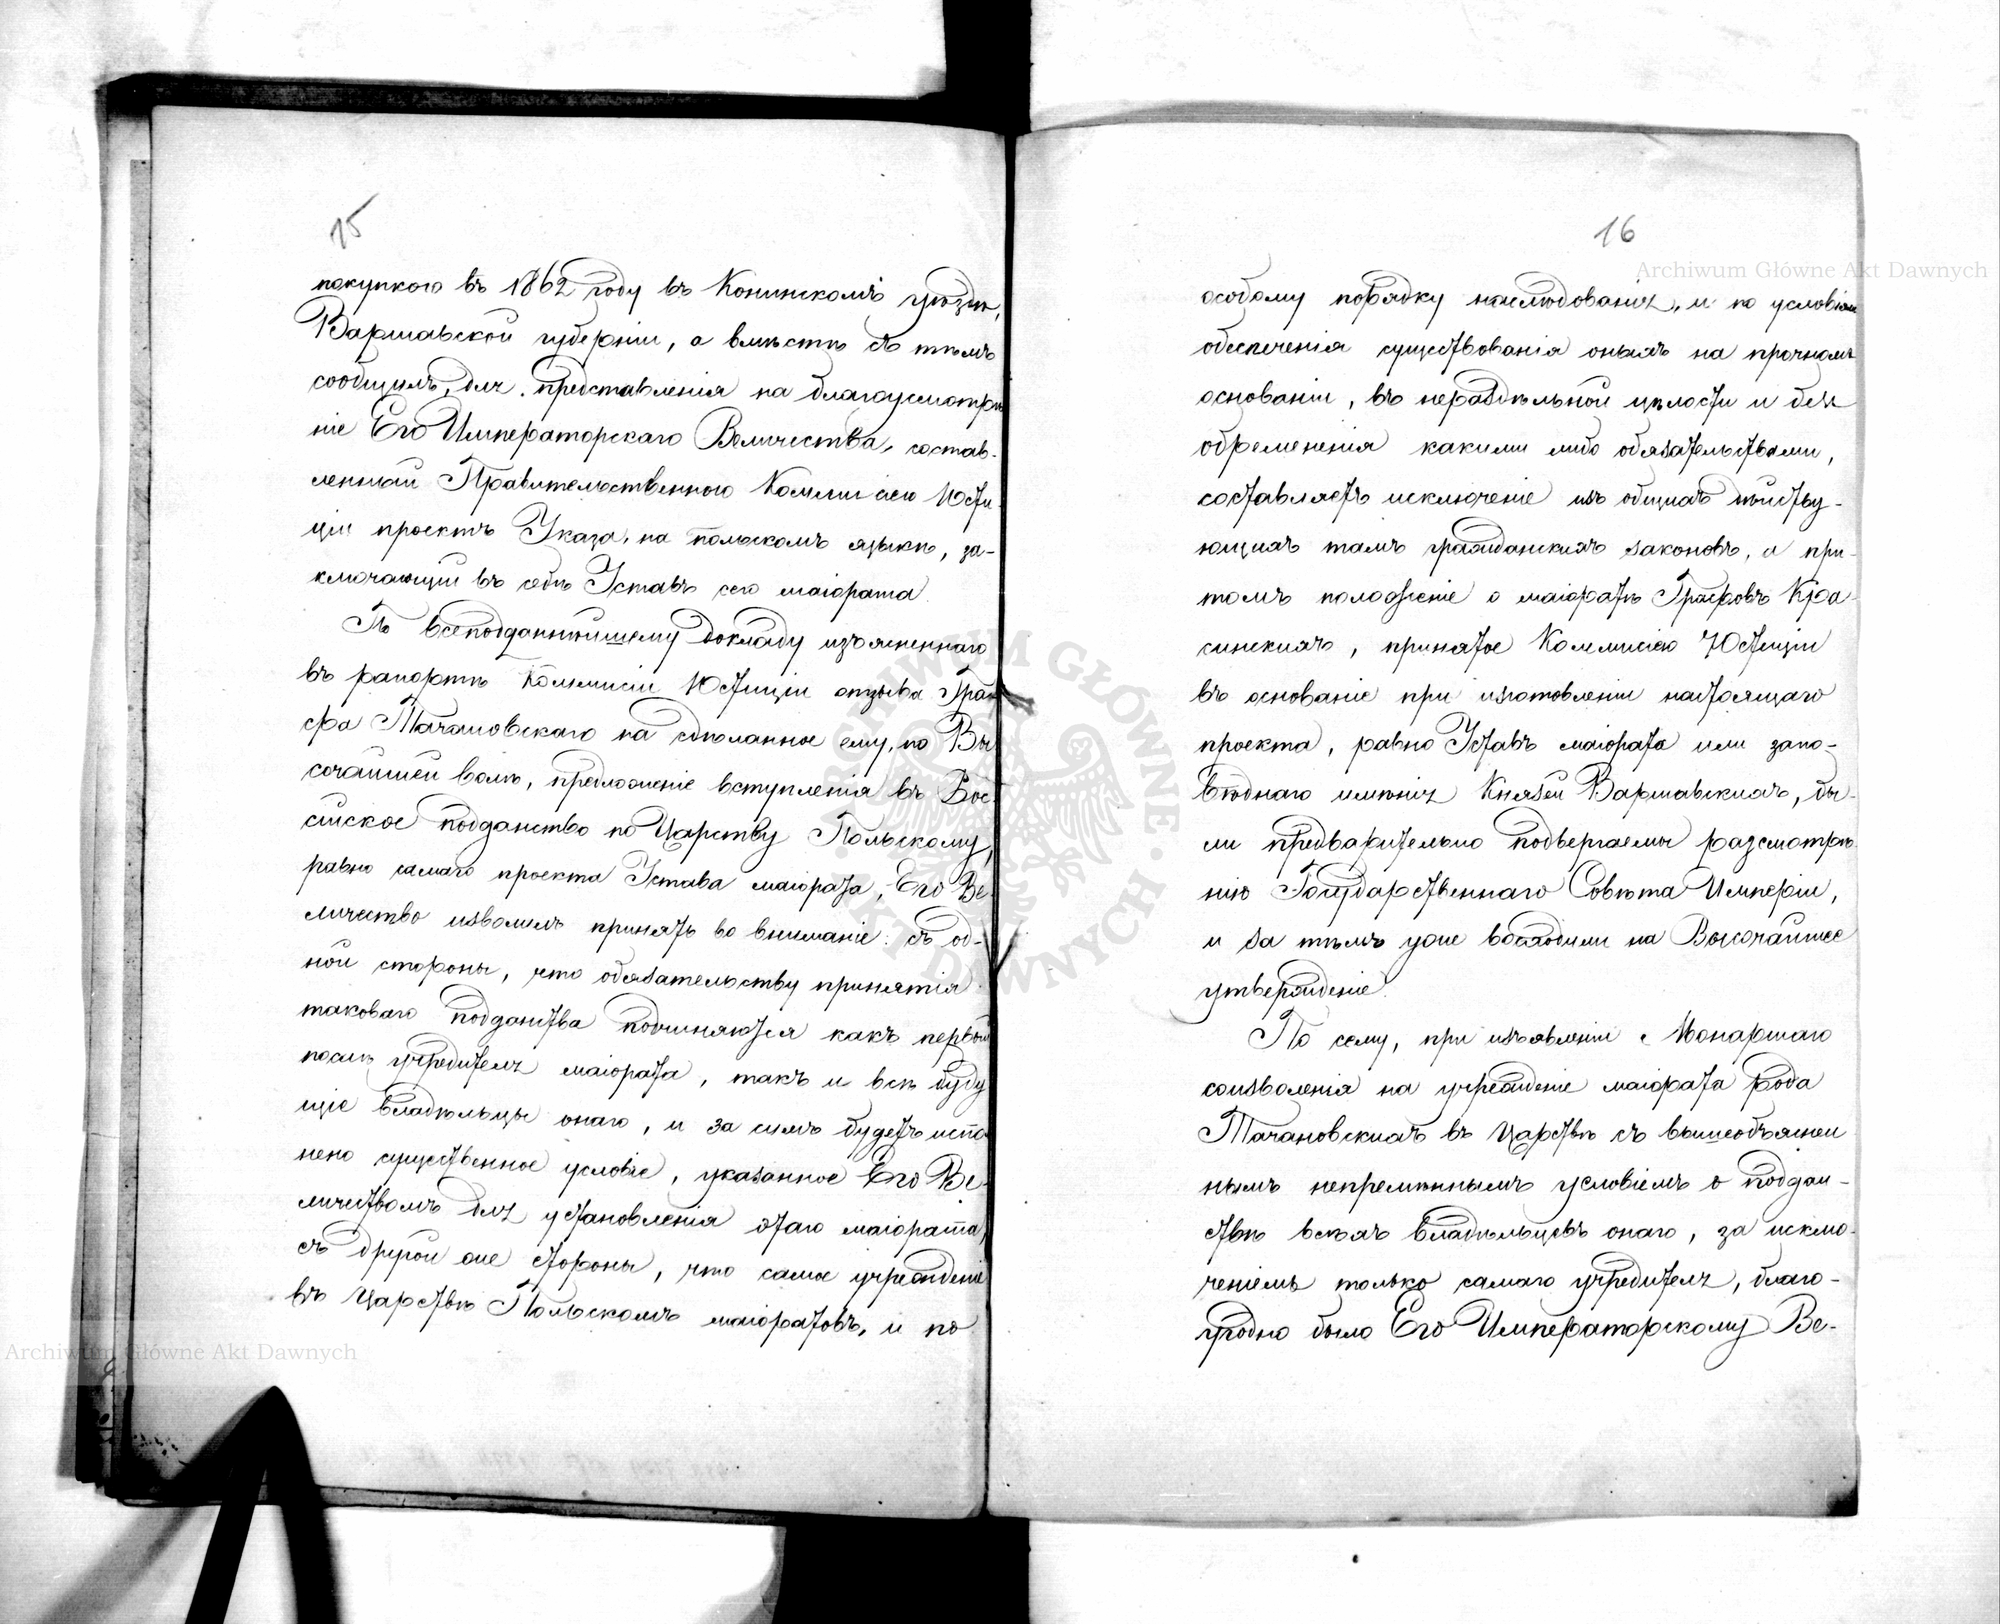 15
покупкою въ 1862 году въ Конинскомъ уѣздѣ,
Варшавской губерніи, а вмѣстѣ съ тѣмъ
сообщилъ, для представленія на благоусмотрѣ
ніе Его Императорскаго Величества, состав-
ленный Правительственною Коммисіею Юсти-
ціи проектъ Указа, на польскомъ языкѣ, за-
ключающій въ себѣ Уставъ сего маіората.
По всеподданнѣйшему докладу изъясненнаго
въ рапортѣ Коммисіи Юстиціи отзыва Гра-
фа Тачановскаго на сдѣланное ему, по Вы
сочайшей волѣ, предложеніе вступленія въ Рос-
сійское подданство по Царству Польскому,
равно самаго проекта Устава маіората, Его Ве-
личество изволилъ принять во вниманіе: съ од-
ной стороны, что обязательству принятія
таковаго подданства подчиняются какъ первый
послѣ учредителя маіората, такъ и всѣ буду
щіе владѣльцы онаго, и за симъ будетъ испол
нено существенное условіе, указанное Его Ве-
личествомъ для установленія этаго маіората,
съ другой же стороны, что самое учрежденіе
въ Царствѣ Польскомъ маіоратовъ, и по
16
особому порядку наслѣдованія, и по условіямъ
обезпеченія существованія оныхъ на прочномъ
основаніи, въ нераздѣльной цѣлости и безъ
обремененія какими либо обязательствами,
составляетъ исключеніе изъ общихъ дѣйству-
ющихъ тамъ гражданскихъ законовъ, а при-
томъ положеніе о маіоратѣ Графовъ Кра-
синскихъ, принятое Коммисіею Юстиціи
въ основаніе при изготовленіи настоящаго
проекта, равно Уставъ маіората или запо-
вѣднаго имѣнія Князей Варшавскихъ, бы-
ли предварительно подвергаемы разсмотрѣ
нію Государственнаго Совѣта Имперіи,
и за тѣмъ уже восходили на Высочайшее
утвержденіе.
По сему, при изъявленіи Монаршаго
соизволенія на учрежденіе маіората рода
Тачановскихъ въ Царствѣ съ вышеобъяснен
нымъ непремѣннымъ условіемъ о поддан-
ствѣ всѣхъ владѣльцевъ онаго, за исклю-
ченіемъ только самаго учредителя, благо-
угодно было Его Императорскому Ве-
Archiwum Główne Akt Dawnych
Archiwum Główne Akt Dawnych
ARCHIWUM GŁÓWNE AKT DAWNYCH